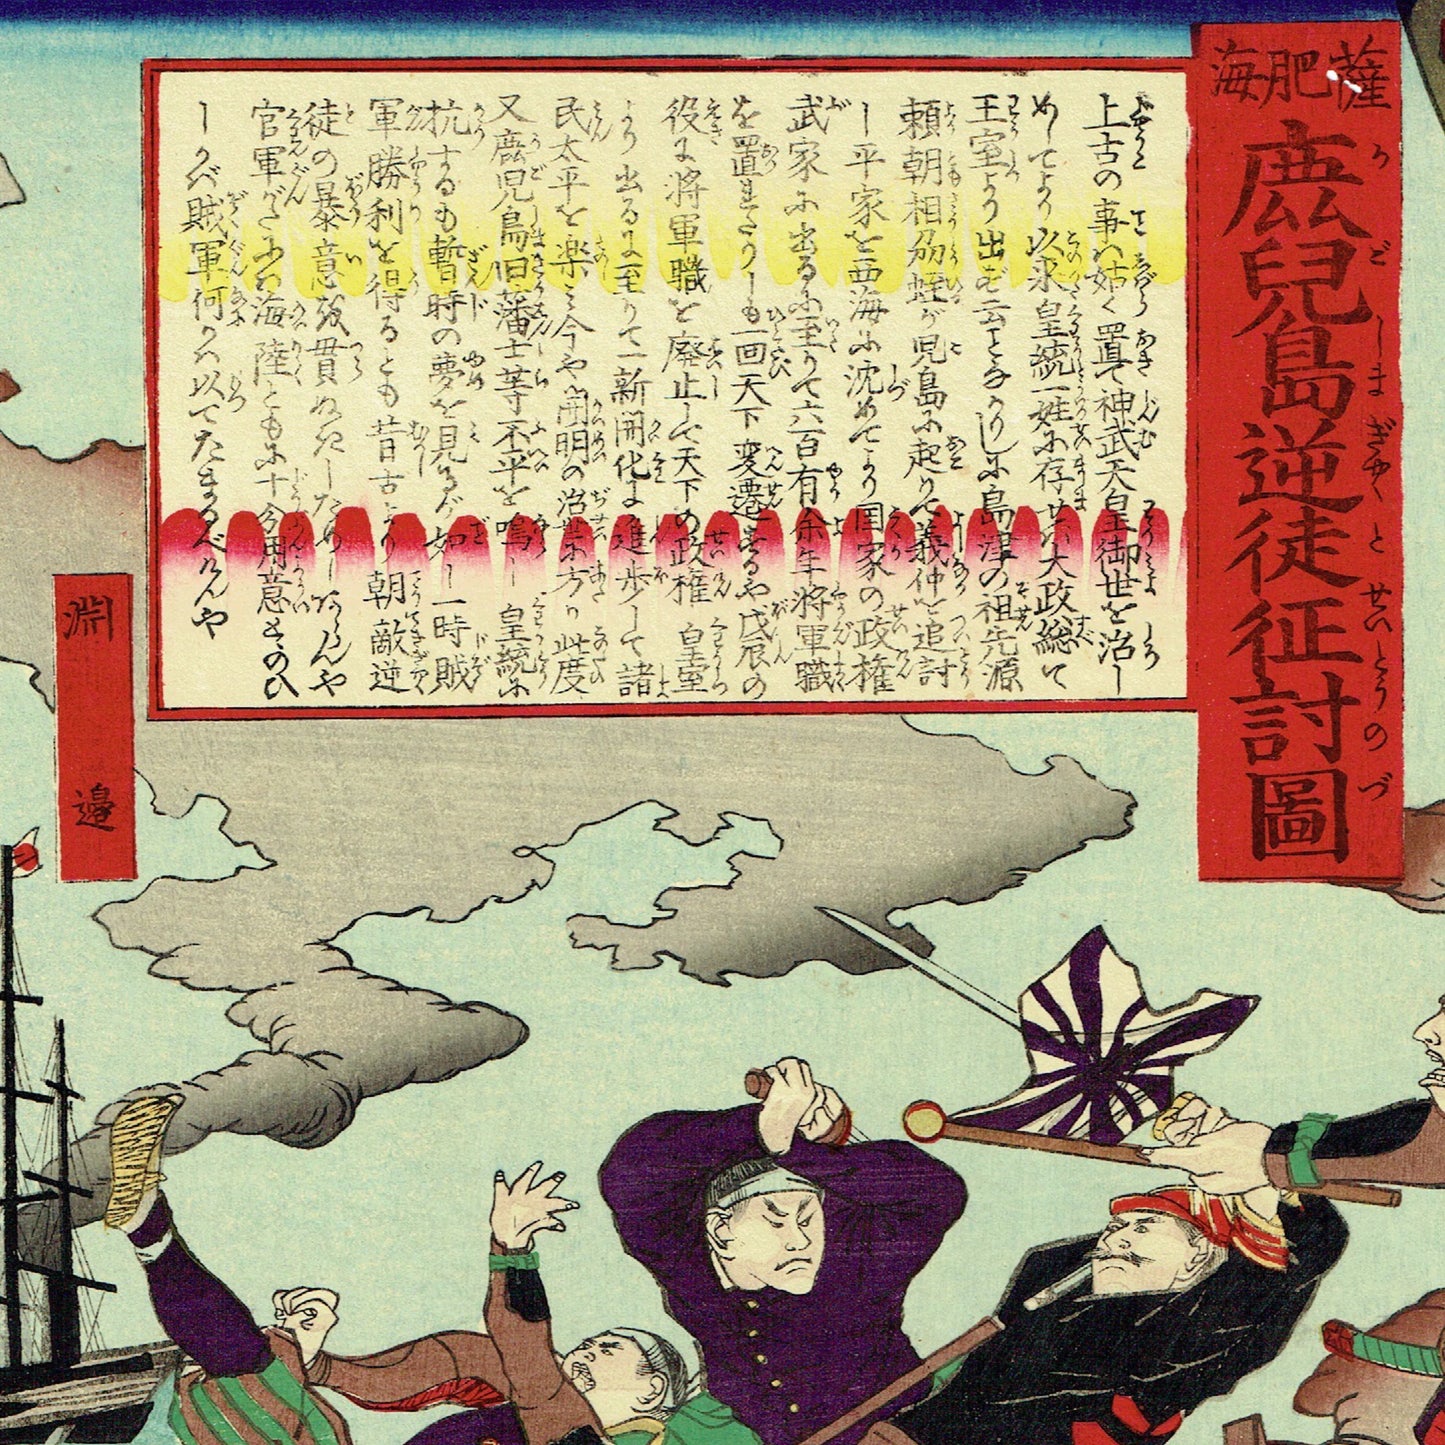 薩肥海
鹿兒島逆徒征討圖
かごしまぎやくとせいとうのづ
上古の事ハ姑く置て神武天皇御世を治し
めしてより以来皇統一姓に存せバ大政総て
王室より出ざ云ことなかりしに島津の祖先源
頼朝相刕蛭が児島に起りて義仲を追討
し平家を西海に沈めてより国家の政権
武家に出るに至りて六百有余年将軍職
を置れさりしも一回天下変遷するや戊辰の
役に将軍職を廃止して天下の政権皇室
より出るに至りて一新開化に進歩して諸
民太平を楽ミ今や開明の治世に方り此度
又鹿児島旧藩士等不平を鳴し皇統に
抗するも暫時の夢を見るが如し一時賊
軍勝利を得るとも昔古より朝敵逆
徒の暴意を貫ぬきしためしあらんや
官軍がたにハ海陸ともに十分用意とゝのひ
しかバ賊軍何かハ以てたまるべけんや
淵邉